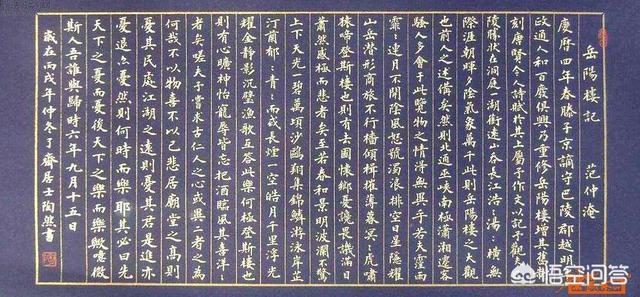 岳陽樓記 范仲淹
慶曆四年春滕子京謫守巴陵郡越明年
政通人和百廢俱興乃重修岳陽樓增其舊制
刻唐賢今人詩賦於其上屬予作文以記之予觀
陵勝狀在洞庭一湖銜遠山吞長江浩々湯々橫無
際涯朝暉夕陰氣象萬千此則岳陽樓之大觀
也前人之述備矣然則北通巫峽南極瀟湘遷客
騷人多會于此覽物之情得無異乎若夫霪雨
霏々連月不開陰風怒號濁浪排空日星隱耀
山岳潛形商旅不行檣傾楫摧薄暮冥々虎嘯
猿啼登斯樓也則有去國懷鄉憂讒畏譏滿目
蕭然感極而悲者矣至若春和景明波瀾不驚
上下天光一碧萬頃沙鷗翔集錦鱗游泳岸芷
汀蘭郁々青々而或長煙一空皓月千里浮光
耀金靜影沉璧漁歌互答此樂何極登斯樓也
則有心曠神怡寵辱皆忘把酒臨風其喜洋々
者矣嗟夫予嘗求古仁人之心或異二者之為
何哉不以物喜不以己悲居廟堂之高則
憂其民處江湖之遠則憂其君是進亦
憂退亦憂然則何時而樂耶其必曰先
天下之憂而憂後天下之樂而樂歟噫微
斯吾誰與歸時六年九月十五日
歲在丙戌年仲冬了齋居士陶然書
悟空问答